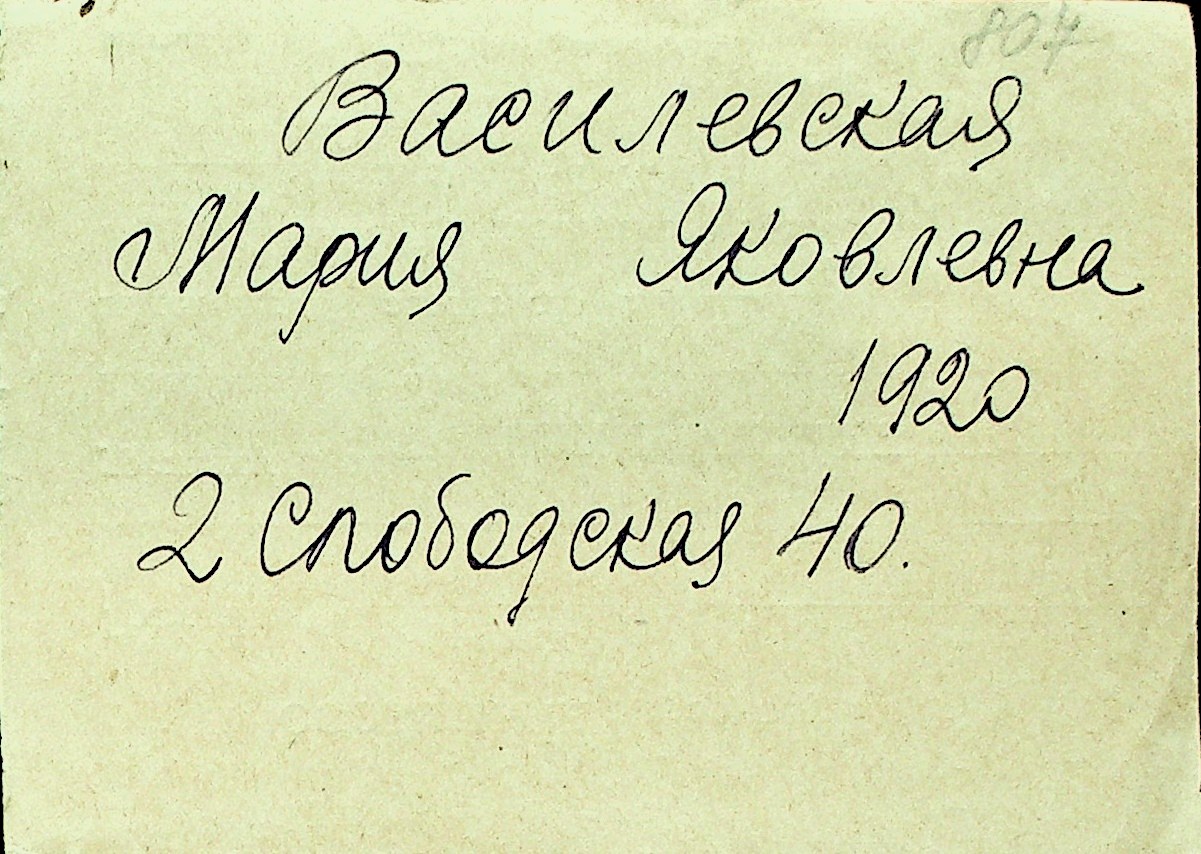 807
Василевская
Мария Яковлевна
1920
2 Слободская 40.